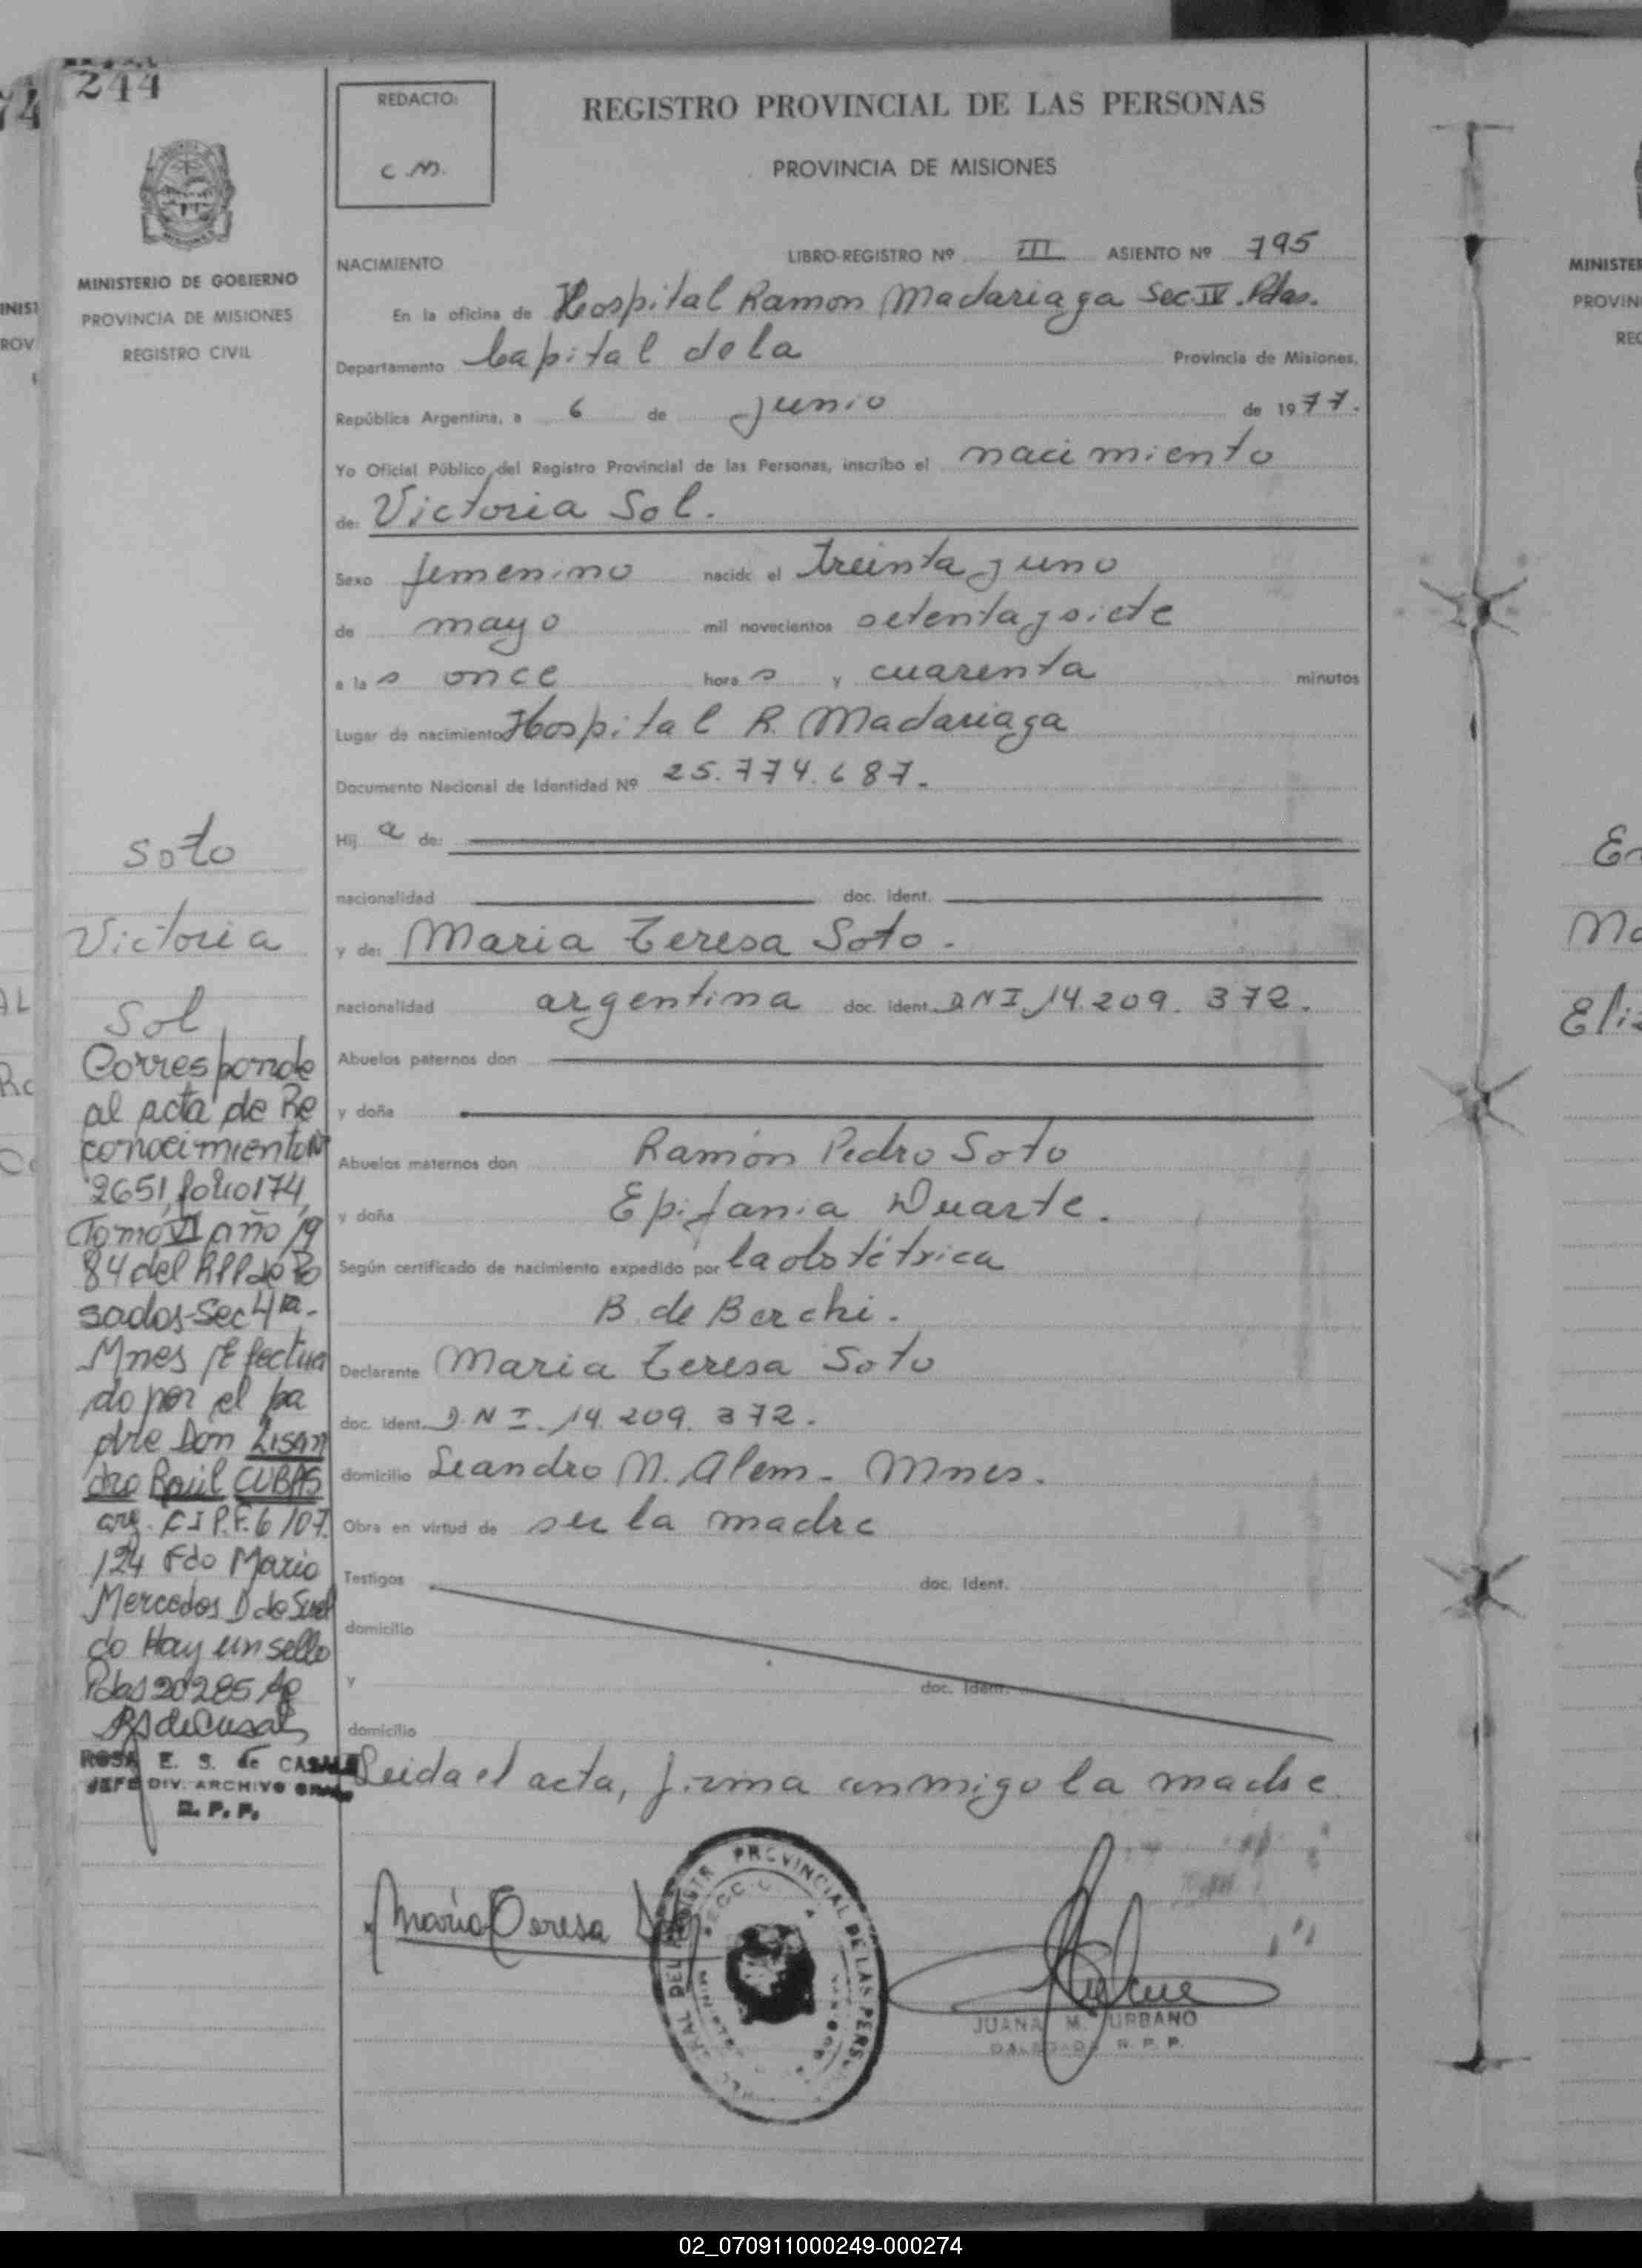 244
MINISTERIO DE GOBIERNO
PROVINCIA DE MISIONES
REGISTRO CIVIL
REDACTO:
C.M.
REGISTRO PROVINCIAL DE LAS PERSONAS
PROVINCIA DE MISIONES
NACIMIENTO LIBRO-REGISTRO Nº III ASIENTO Nº 795
En la oficina de Hospital Ramon Madariaga Sec. IV. Pdas.
Departamento Capital de la Provincia de Misiones,
República Argentina, a 6 de junio de 1977.
Yo Oficial Público del Registro Provincial de las Personas, inscribo el nacimiento
de: Victoria Sol.
Sexo femenino nacido el treinta y uno
de mayo mil novecientos setenta y siete
a las once horas y cuarenta minutos
Lugar de nacimiento Hospital R. Madariaga
Documento Nacional de Identidad Nº 25.774.687.
Hija de:
nacionalidad doc. ident.
y de: Maria Teresa Soto.
nacionalidad argentina doc. ident. DNI 14.209.372.
Abuelos paternos don
y doña
Abuelos maternos don Ramón Pedro Soto
y doña Epifania Duarte.
Según certificado de nacimiento expedido por la obstétrica
B. de Berchi.
Declarante Maria Teresa Soto
doc. ident. D.N.I. 14.209.372.
domicilio Leandro N. Alem - Mnes.
Obra en virtud de ser la madre
Testigos doc. ident.
domicilio
y doc. ident.
domicilio
Leida el acta, firma conmigo la madre
Soto
Victoria
Sol
Corresponde
al acta de Re
conocimiento Nº
2651, folio 174,
Tomo VI año 19
84 del RPP de Po
sadas-Sec 4ta.-
Mnes /Efectua
do por el pa
dre Don Lisan
dro Raúl CUBAS
arg. C.I P.F. 6/07.
124 Fdo Mario
Mercedes D de
do Hay un sello
Pdas 20285
ROSA E. S. de CASALS
JEFE DIV. ARCHIVO GRAL
R. P. P.
Maria Teresa Soto
PROVINCIAL DE LAS PERS
JUANA M. URBANO
DELEGADA R. P. P.
MINISTER
PROVIN
REG
02_070911000249-000274